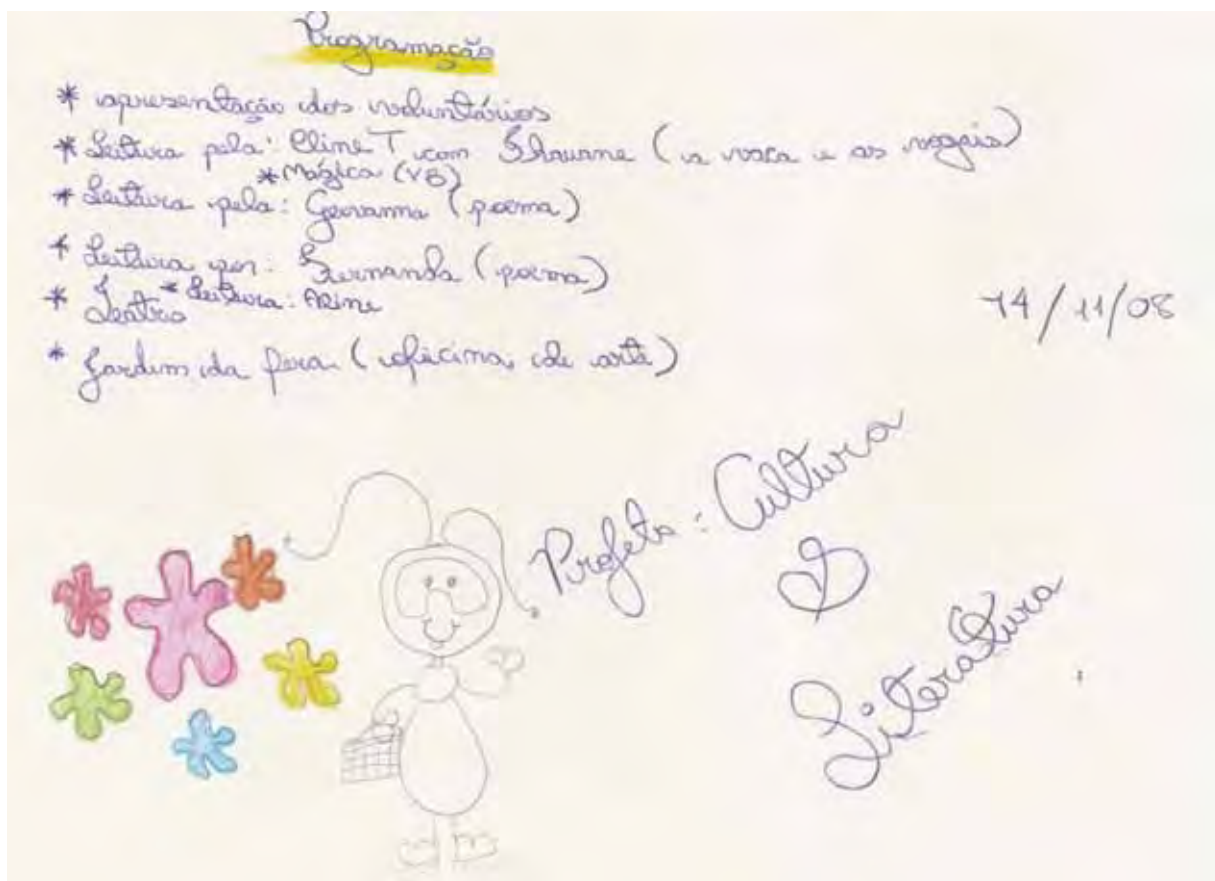 Programação
* apresentação dos voluntários
* Leitura pela: Cline T com Shauane (a vaca e as
* Mágica (VB)
* Leitura pela: Geovanna (poema)
* Leitura por: Fernanda (poema)
* Leitura: Aline
* Teatro
* Jardim da (oficina de arte)
14/11/08
Projeto: Cultura
&
Literatura